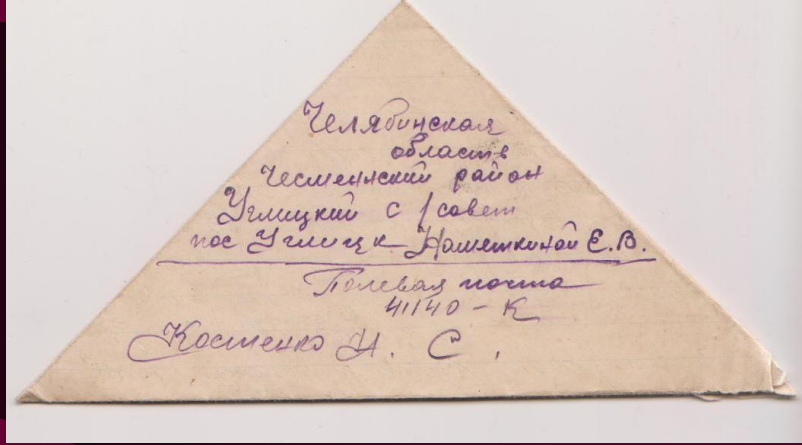 Челябинская
область
Чесменский район
Углицкий с/совет
пос Углицк Нашеткиной Е.В.
Полевая почта
41140-К
Костенко И. С.